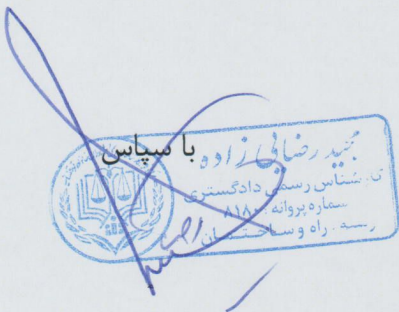 با سپاس
مجید رضایی زاده
کارشناس رسمی دادگستری
شماره پروانه: ۸۱۸
رشته: راه و ساختمان